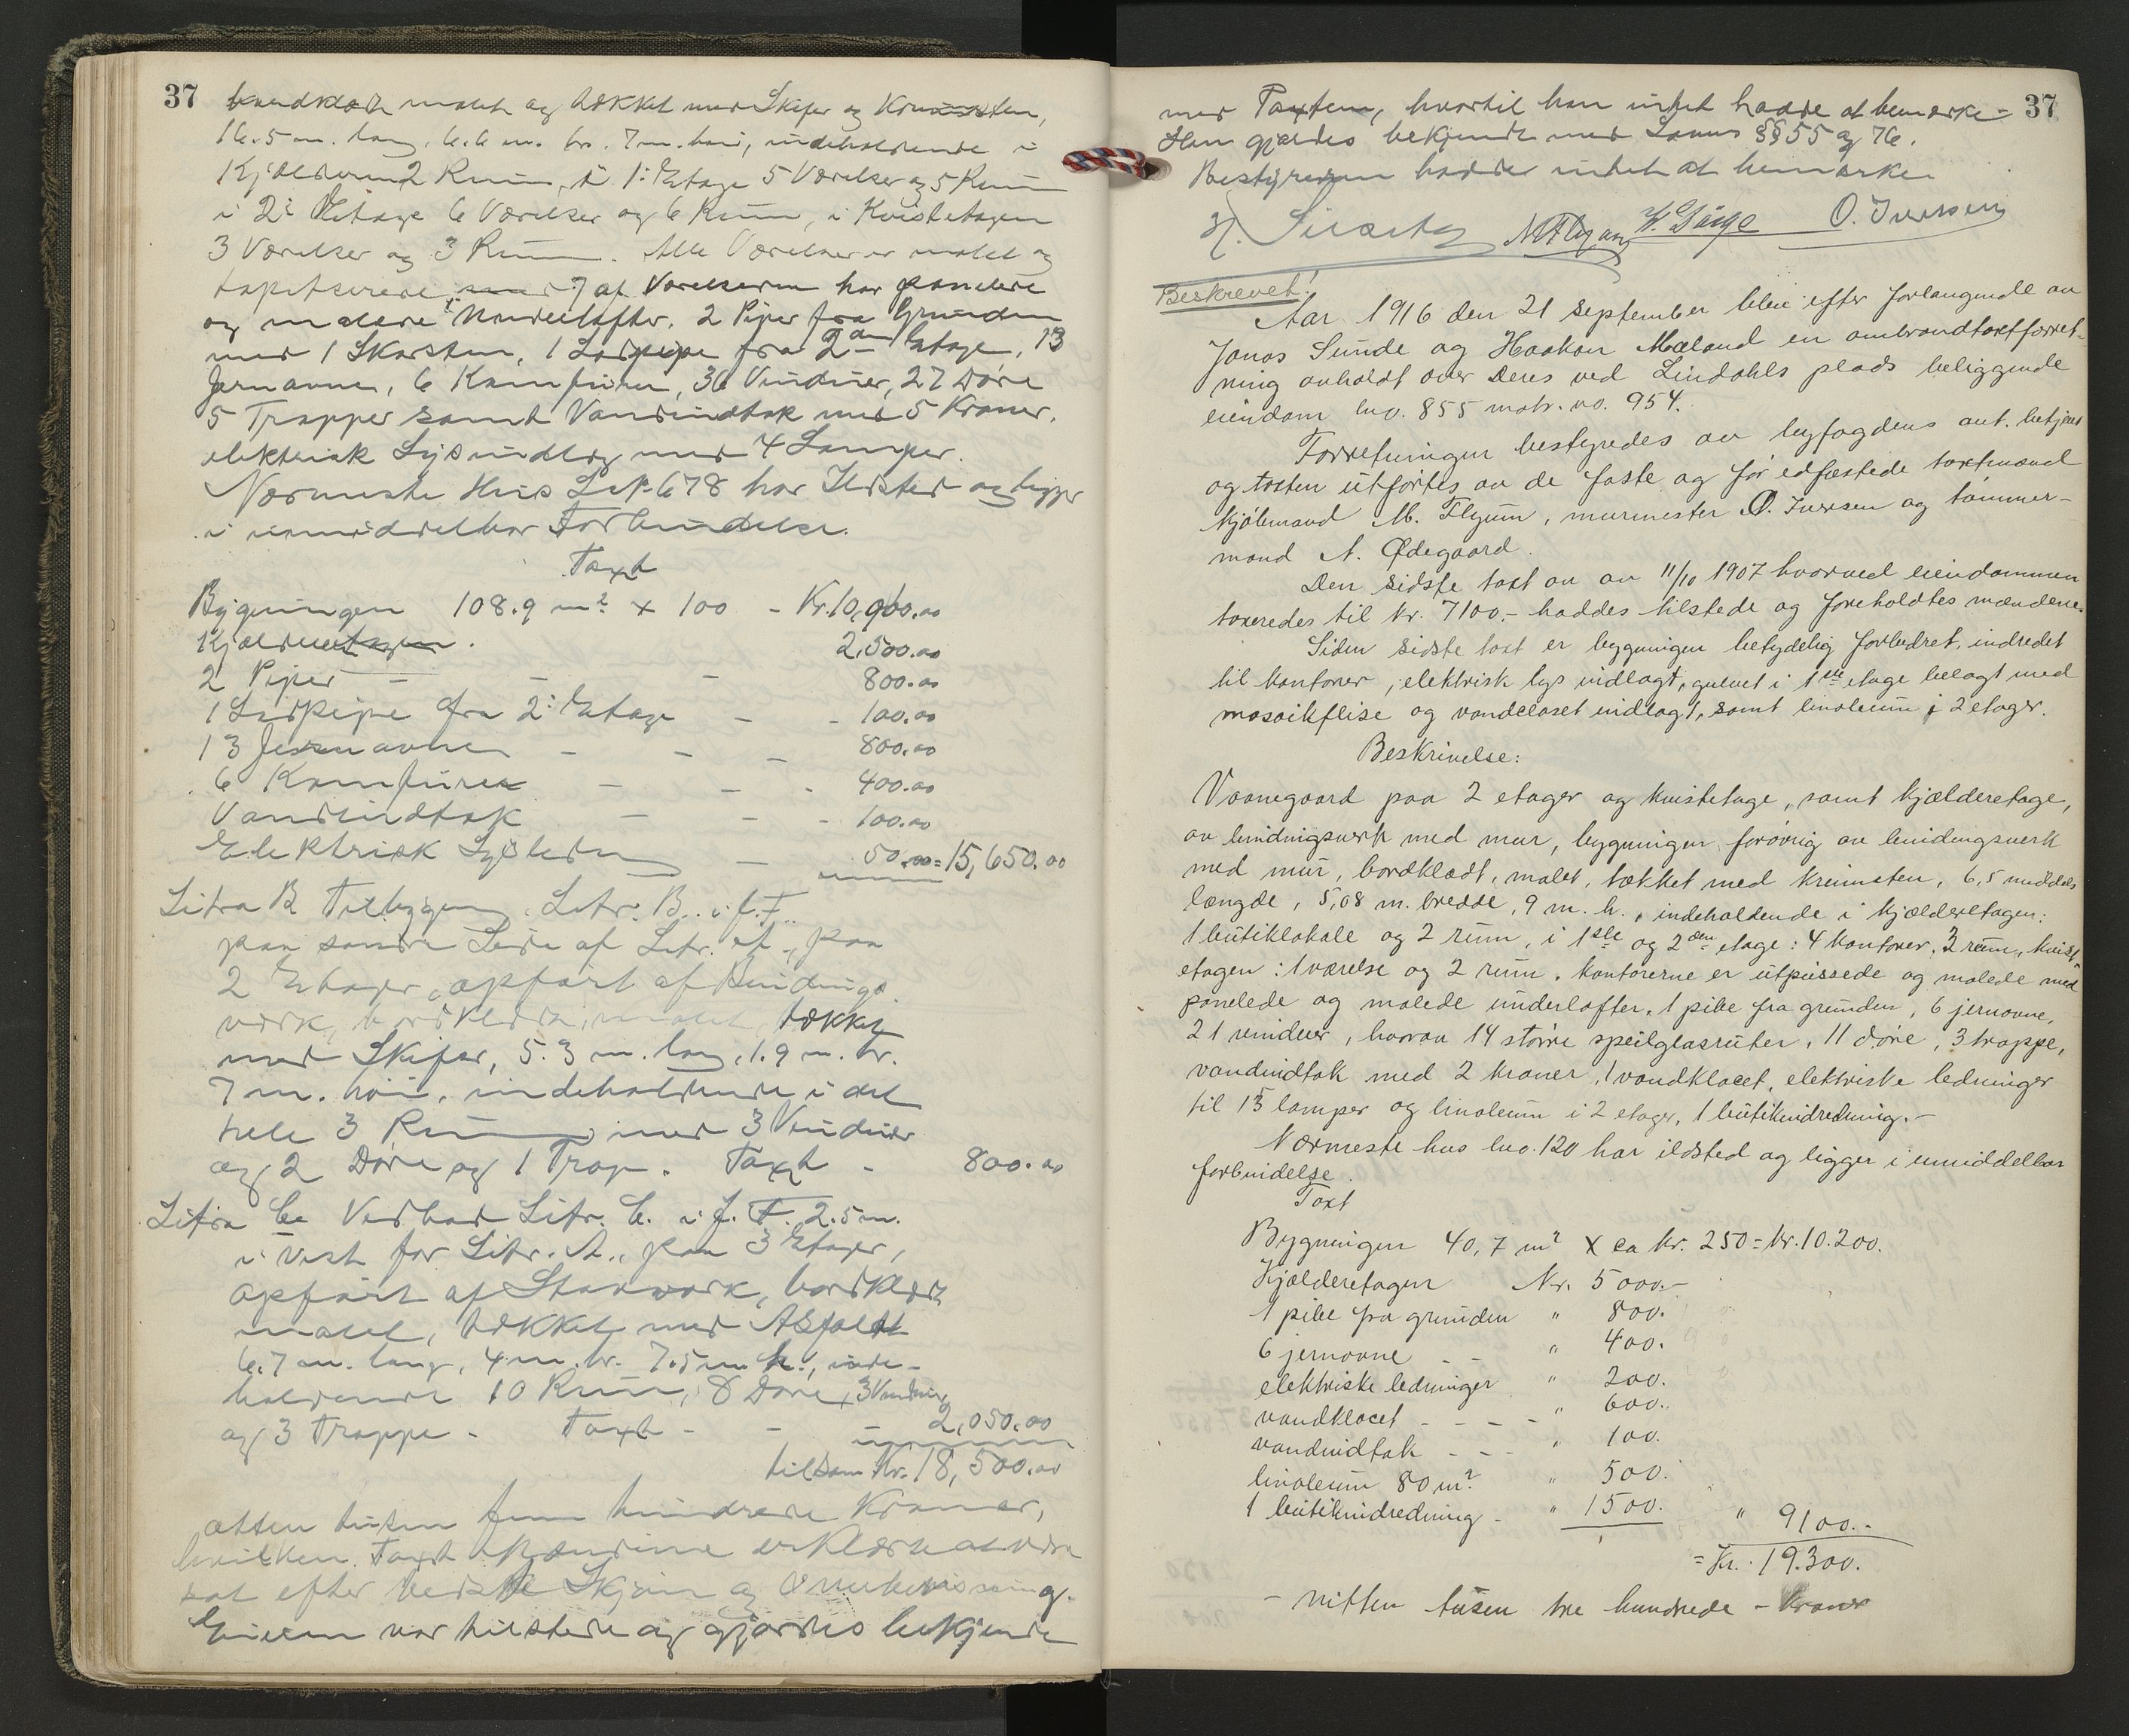 37
bordklædt malet og tækket med Skifer og Krumsten,
16.5 m. lang, 6.6 m. br. 7 m. høi, indeholdende i
Kjælderen 2 Rum, i 1: Etage 5 Værelser og 5 Rum
i 2: Etage 6 Værelser og 6 Rum, i Kvistetagen
3 Værelser og 3 Rum. Alle Værelser er malet og
tapetserede, 7 af Værelserne har panelede
og malede Underlofter. 2 Piper fra Grunden
med 1 Skorsten, 1 Løspipe fra 2den Etage, 13
Jernovne, 6 Komfurer, 36 Vinduer, 27 Døre
5 Trapper samt Vandindtak med 5 Kraner,
elektrisk Lysindlæg med 4 Lamper.
Nærmeste Hus L.No. 678 har Ildsted og ligger
i umiddelbar Forbindelse.
Taxt
Bygningen 108.9 m² x 100 - Kr. 10,900.00
Kjælder . 2,500.00
2 Piper - - - 800.00
1 Løspipe fra 2: Etage - - 100.00
13 Jernovne - - - 800.00
6 Komfurer - - - 400.00
Vandindtak - - - 100.00
Elektrisk Lysledn - 50.00 = 15,650.00
Litra B Tilbygning Litr. B. i f. T.
paa søndre Side af Litr. A, paa
2 Etager, opført af Bindings
værk, bordklædt, malet, tækket
med Skifer, 5.3 m. lang, 1.9 m. br.
7 m. høi, indeholdende i det
hele 3 Rum med 3 Vinduer
og 2 Døre og 1 Trap. Taxt - 800.00
Litra C. Vedbod Litr. C. i f. T. 2.5 m.
i Vest for Litr. A., paa 3 Etager,
opført af Stavværk, bordklædt
malet, tækket med Asfalt
6.7 m. lang, 4 m. br. 7.5 m h., inde-
holdende 10 Rum, 8 Døre, 3 Vinduer
og 3 Trappe - Taxt - - 2,050.00
tilsam Kr. 18,500.00
atten tusen fem hundrede Kroner,
hvilken Taxt Mændene erklærte at være
sat efter bedste Skjøn og Overbevisning.
Eieren var tilstede og gjordes bekjendt
37
med Taxten, hvortil han intet hadde at bemerke -
Han gjordes bekjendt med Lovens §§ 55 og 76.
Bestyreren hadde intet at bemærke
O. Iversen
Beskrevet!
Aar 1916 den 21 september blev efter forlangende av
Jonas Sunde og Haakon Mæland en ombrandtaxtforret-
ning avholdt over deres ved Lindahls plads beliggende
eiendom lno. 855 matr. no. 954.
Forretningen bestyredes av byfogdens aut. betjent
og taxten utførtes av de faste og før edfæstede taxtmænd
kjøbmand M. Flyum, murmester O. Iversen og tømmer-
mand A. Ødegaard.
Den sidste taxt av av 11/10 1907 hvorved eiendommen
taxeredes til kr. 7100.- haddes tilstede og foreholdtes mændene.
Siden sidste taxt er bygningen betydelig forbedret, indredet
til kontorer, elektrisk lys indlagt, gulvet i 1ste etage belagt med
mosaikflise og vandcloset indlagt, samt linoleum i 2 etager.
Beskrivelse:
Vaanegaard paa 2 etager og kvistetage, samt kjælderetage,
av bindingsverk med mur, bygningen forøvrig av bindingsverk
med mur, bordklædt, malet, tækket med krumsten, 6,5 middels
længde, 5,08 m. bredde, 9 m. h., indeholdende i kjælderetagen:
1 butiklokale og 2 rum, i 1ste og 2den etage: 4 kontorer, 2 rum, kvist-
etagen: 1 værelse og 2 rum. Kontorerne er utpussede og malede med
panelede og malede underlofter. 1 pibe fra grunden, 6 jernovne,
21 vinduer, hvorav 14 større speilglasruter, 11 døre, 3 trappe,
vandindtak med 2 kraner, 1 vandklocet, elektriske ledninger
til 13 lamper og linoleum i 2 etager, 1 butikindredning.-
Nærmeste hus lno. 120 har ildsted og ligger i umiddelbar
forbindelse.
Taxt
Bygningen 40,7 m² x ca kr. 250 = kr. 10.200.
Kjælderetagen Kr. 5000.-
1 pibe fra grunden " 800.
6 jernovne - - " 400.
elektriske ledninger " 200.
vandklocet - - - - " 600.
vandindtak - - - " 100.
linoleum 80 m² " 500.
1 butikindredning - " 1500. " 9100.-
= Kr. 19.300.
- nitten tusen tre hundrede - Kroner